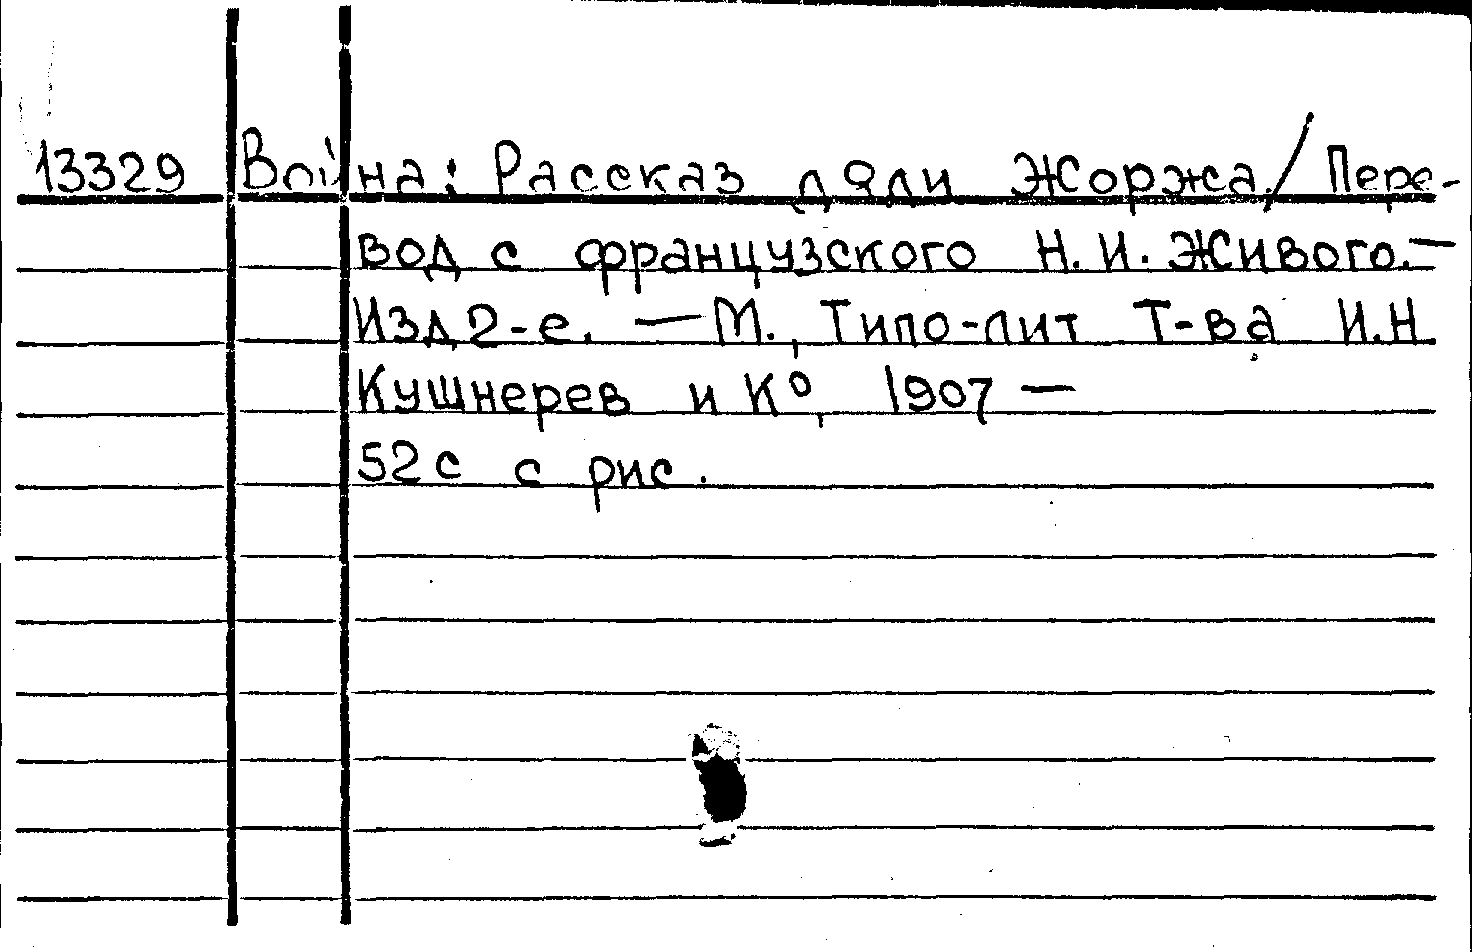 13329 Война: Рассказ дяди Жоржа. / Пере-
вод с французского Н. И. Живого. —
Изд 2-е. — М., Типо-лит Т-ва И.Н.
Кушнерев и К°, 1907 —
52с с рис.